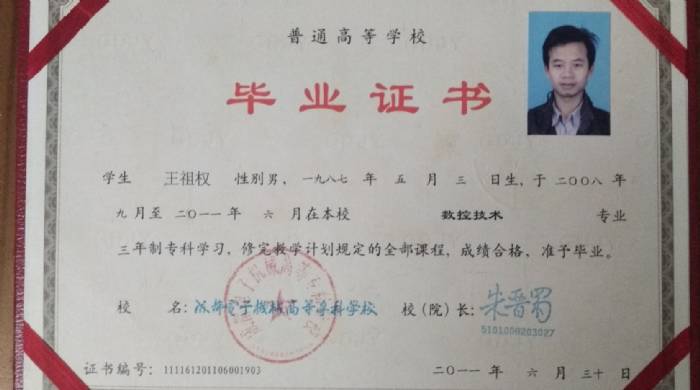 普通高等学校
毕业证书
学生 王祖权 性别男，一九八七年 五 月 三 日生，于二〇〇八年
九月至二〇一一年 六 月在本校 数控技术 专业
三年制专科学习，修完教学计划规定的全部课程，成绩合格，准予毕业。
校 名：成都电子机械高等专科学校 校（院）长：朱晋蜀
5101008203027
证书编号：111161201106001903 二〇一一年 六 月 三十 日